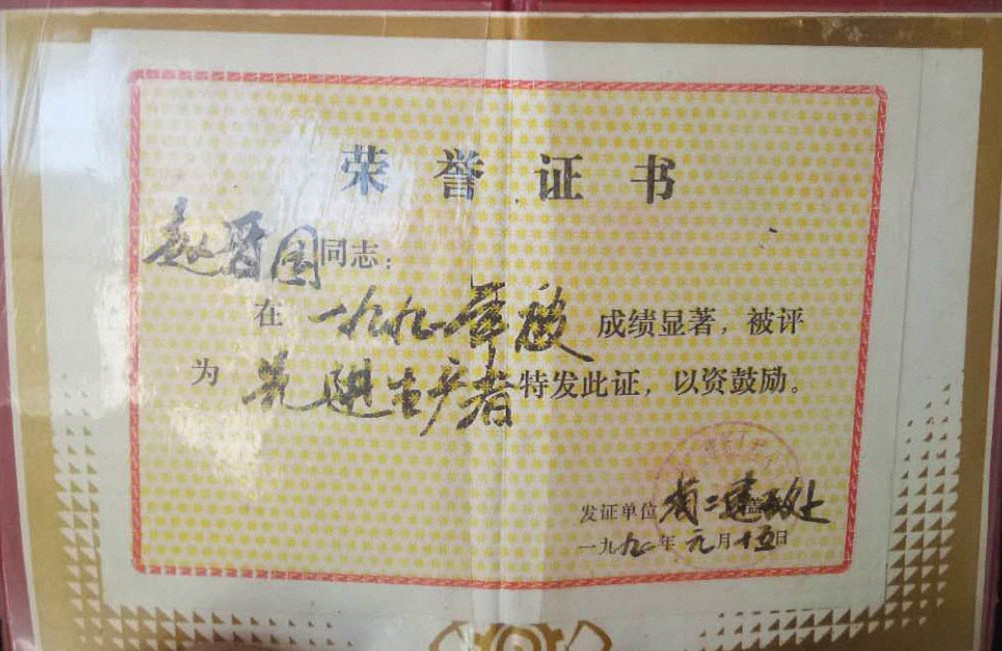 荣誉证书
赵晋国同志：
在一九九一年被 成绩显著，被评
为先进生产者特发此证，以资鼓励。
发证单位 省二建五处
一九九二年元月十五日